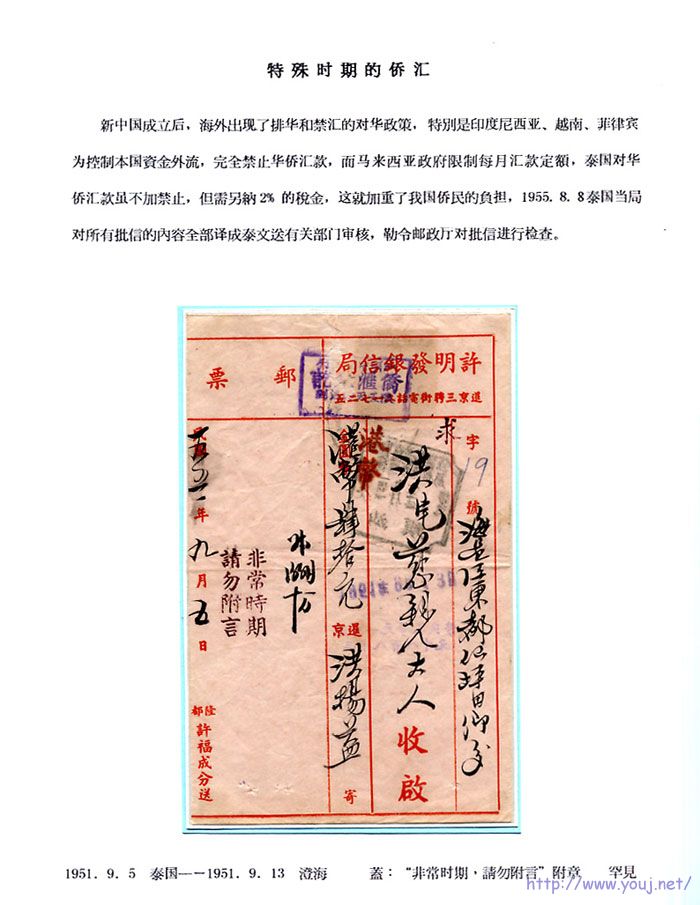 特殊时期的侨汇
新中国成立后，海外出现了排华和禁汇的对华政策，特别是印度尼西亚、越南、菲律宾
为控制本国資金外流，完全禁止华侨汇款，而马来西亚政府限制每月汇款定額，泰国对华
侨汇款虽不加禁止，但需另納2% 的稅金，这就加重了我国侨民的负担，1955. 8. 8泰国当局
对所有批信的內容全部译成泰文送有关部门审核，勒令邮政厅对批信进行检查。
許明發銀信局
郵票
字
19
號
收啟
港幣
港幣肆拾元
暹京
洪楊益
寄
非常時期
請勿附言
年九月五日
隆都
許福成分送
1951. 9. 5 泰国——1951. 9. 13 澄海 蓋：“非常时期，請勿附言”附章 罕見
http://www.youj.net/